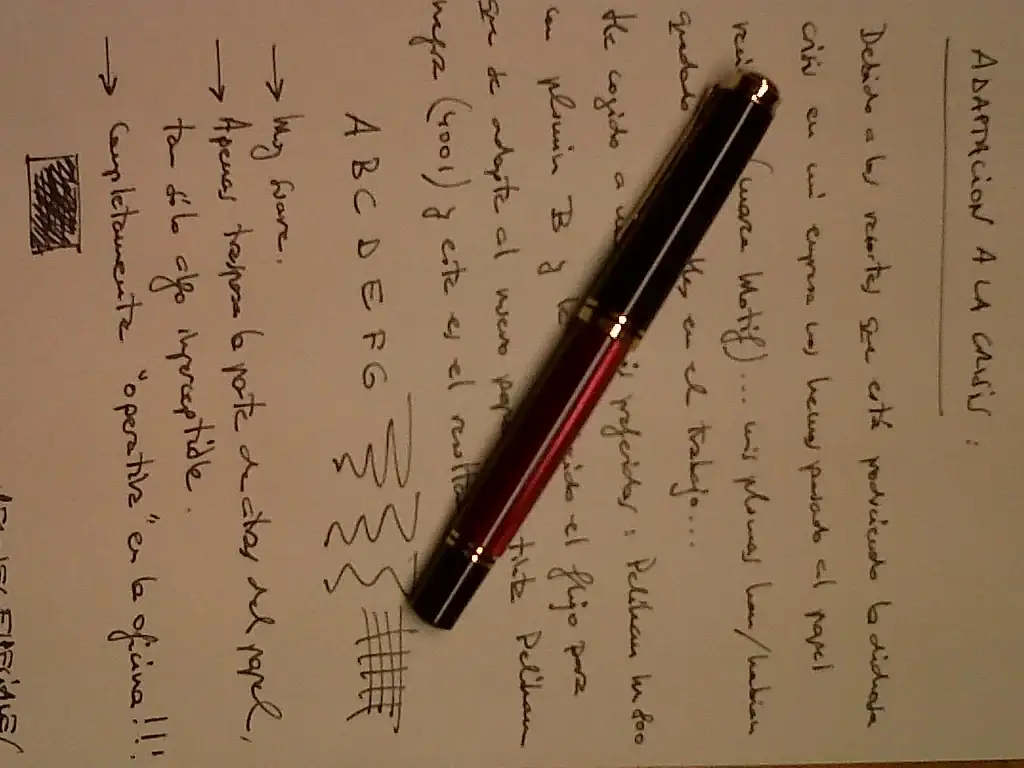 ADAPTACION A LA CRISIS:
Debido a los recortes que está produciendo la dichosa
crisis en mi empresa nos hemos pasado al papel
(marca Motif)... mis plumas han/habían
quedado en el trabajo...
He cogido a mis preferidas: Pelikan M800
con plumín B y el flujo para
que se adapte al nuevo papel tinta Pelikan
negra (4001) y este es el
A B C D E F G
→ Muy suave.
→ Apenas traspasa la parte de atrás del papel,
tan sólo algo imperceptible.
→ Completamente "operativa" en la oficina!!!